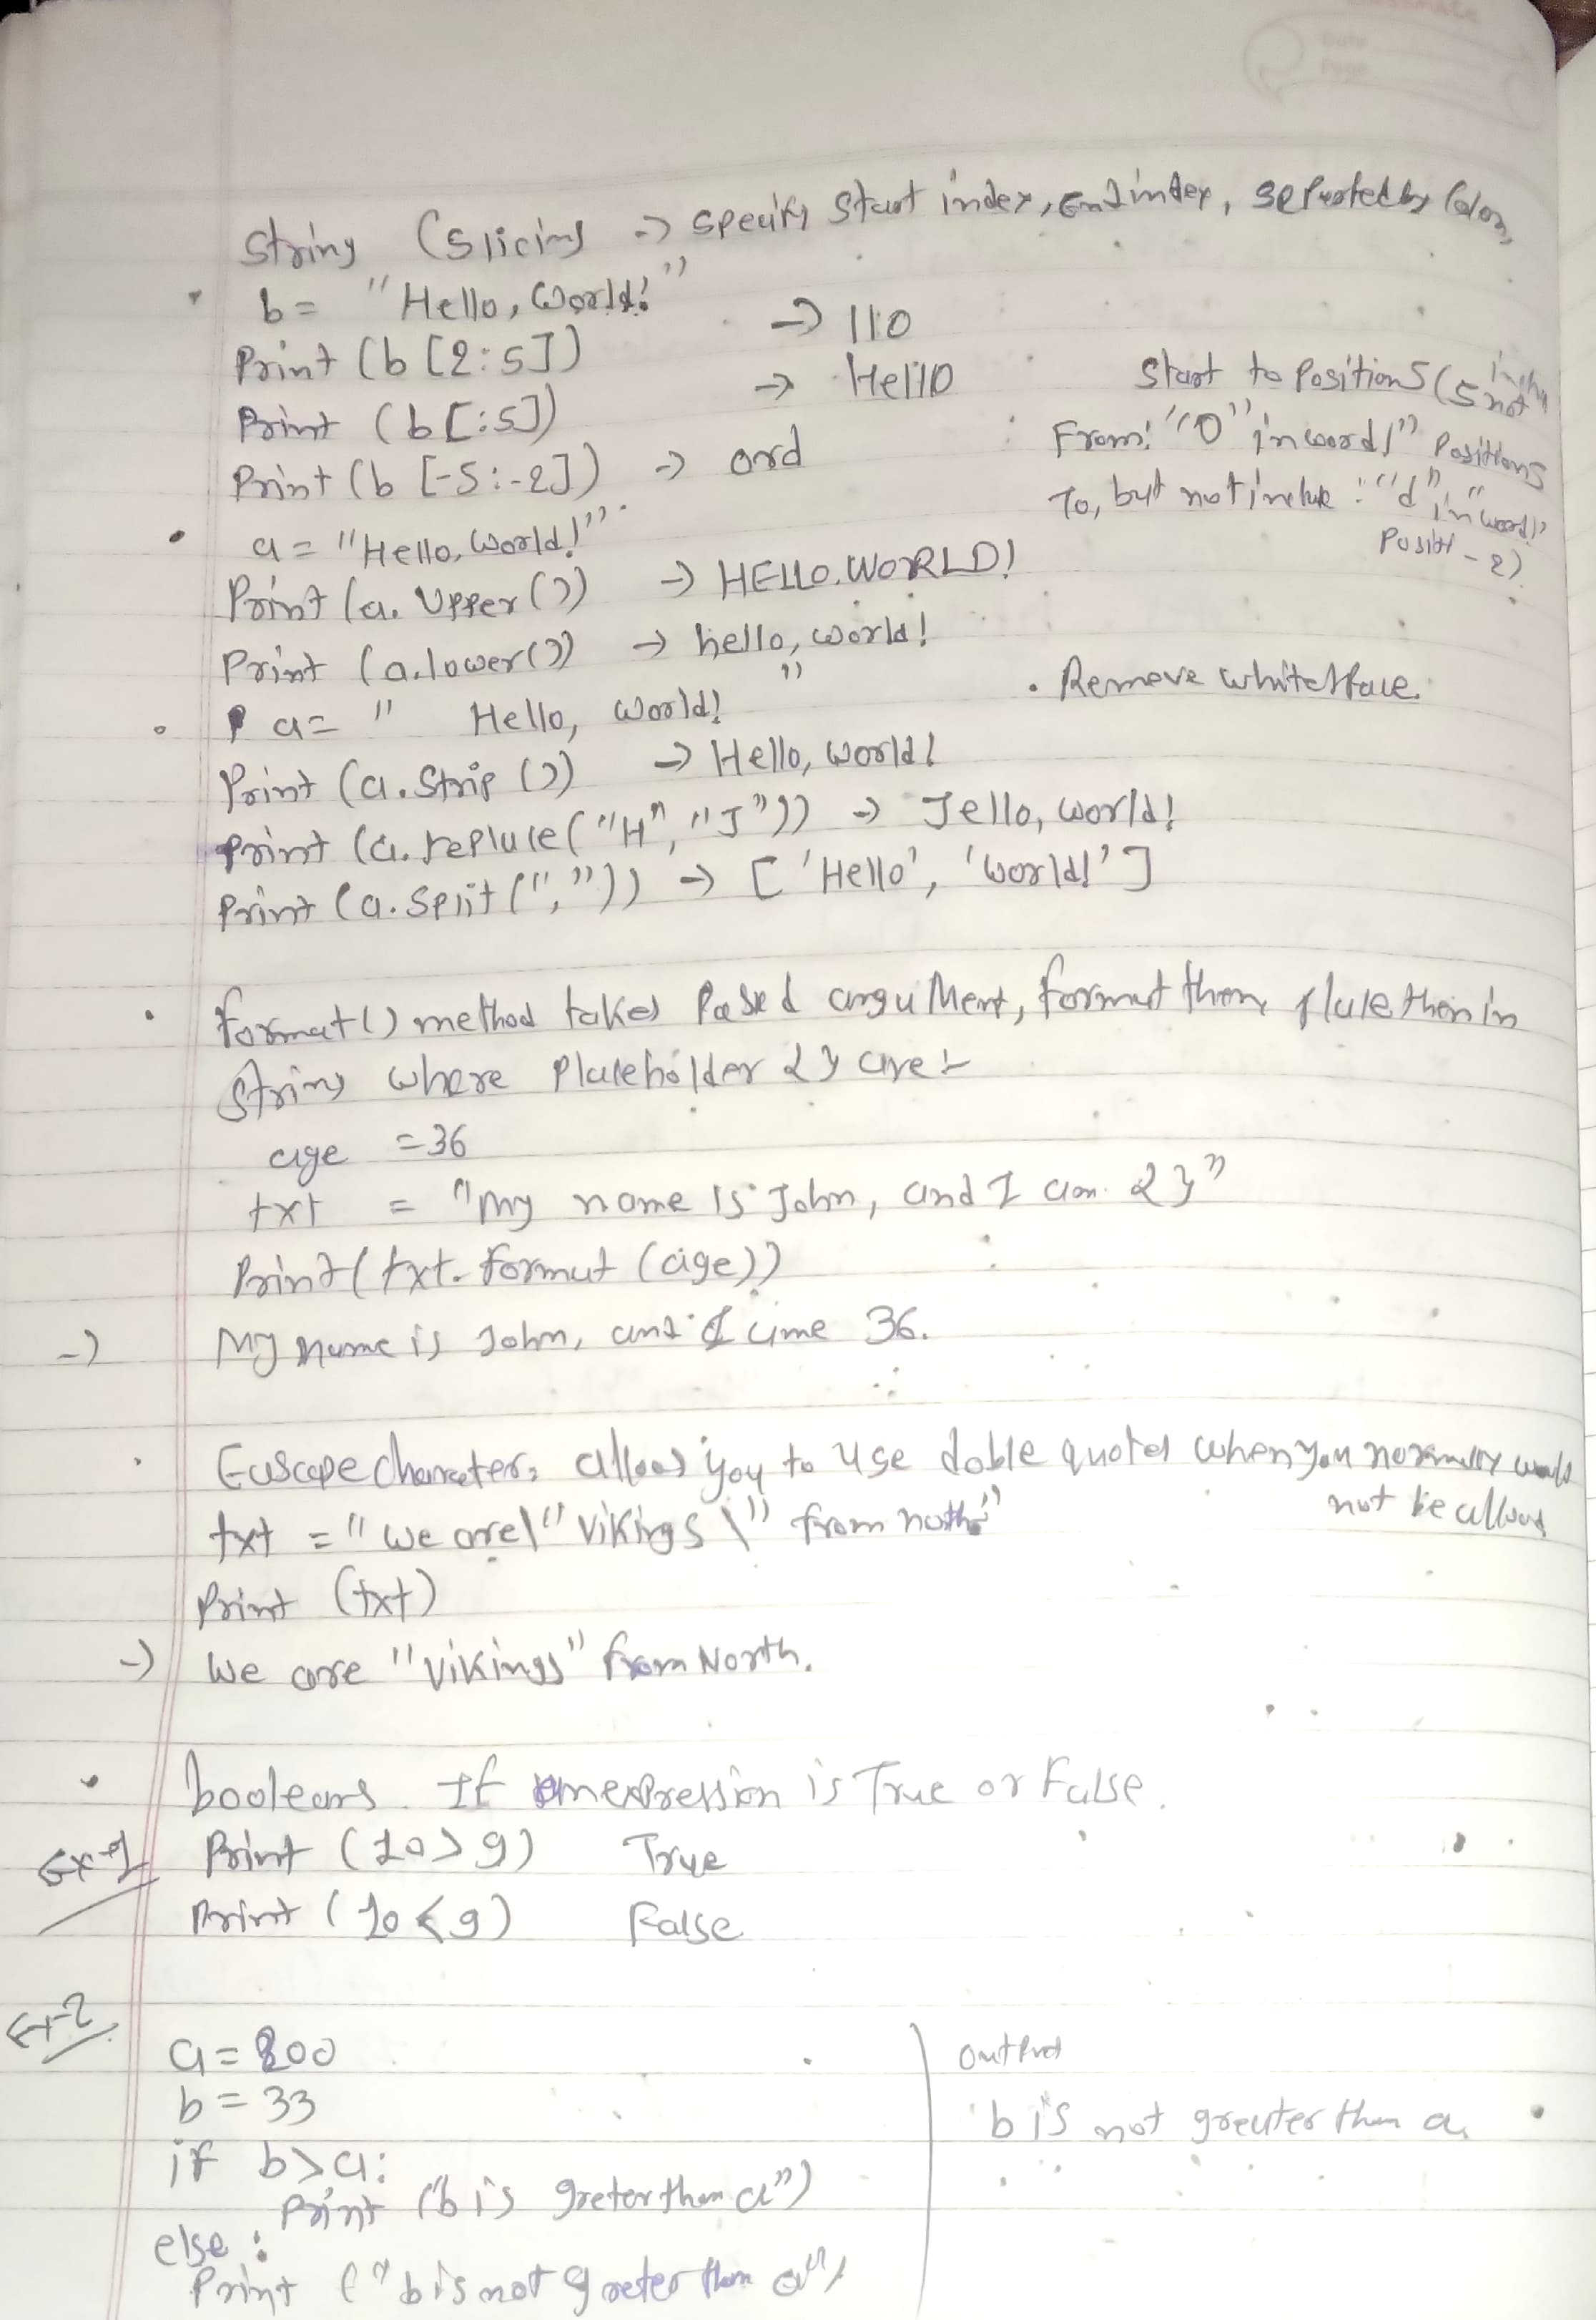 String (Slicing -> specify Start index, End index, seperated by Colon,
b = "Hello, World!"
Print (b [2:5]) -> llo
Print (b[:5]) -> Hello Start to Position 5 (5 not
Print (b [-5:-2]) -> ord From: "O" in world!" Position 5
a = "Hello, World!" To, but not include : "d" in "world!"
Positi -2)
Print (a. Upper ()) -> HELLO, WORLD!
Print (a.lower()) -> hello, world!
a = " Hello, World! " . Remove whitespace.
Print (a. Strip ()) -> Hello, world!
Print (a. replace ("H", "J")) -> Jello, world!
Print (a. Split (",")) -> ['Hello', 'World!']
format() method takes Pased argument, format them, place them in
String where Placeholder {} are :-
age = 36
txt = "My name is John, and I am {}"
Print (txt. format (age))
-> My name is John, and I ame 36.
Euscape character, allows you to use doble quotes when you normally would
not be allowed
txt = "We are \" Vikings \" from north"
Print (txt)
-> We are "Vikings" from North.
booleans. If an expression is True or False.
Ex-1 Print (10 > 9) True
Print (10 < 9) False
Ex-2
a = 200 output
b = 33
if b > a: b is not greater than a.
Print ("b is greter than a")
else :
Print ("b is not greter than a")